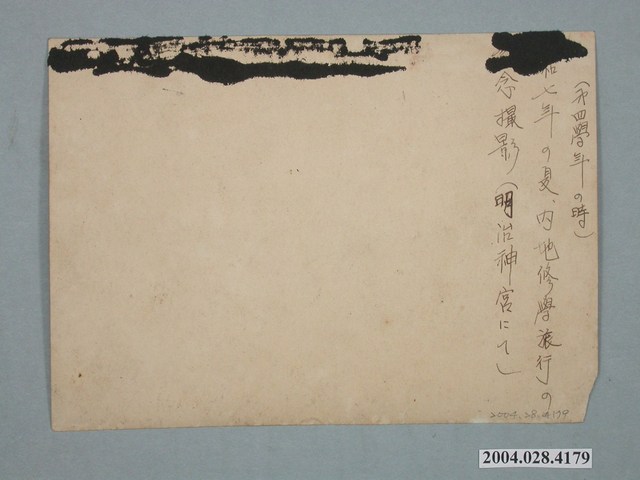 （第四學年の時）
和七年の夏、内地修學旅行の
念撮影（明治神宮にて）
2004.28.4179
2004.028.4179